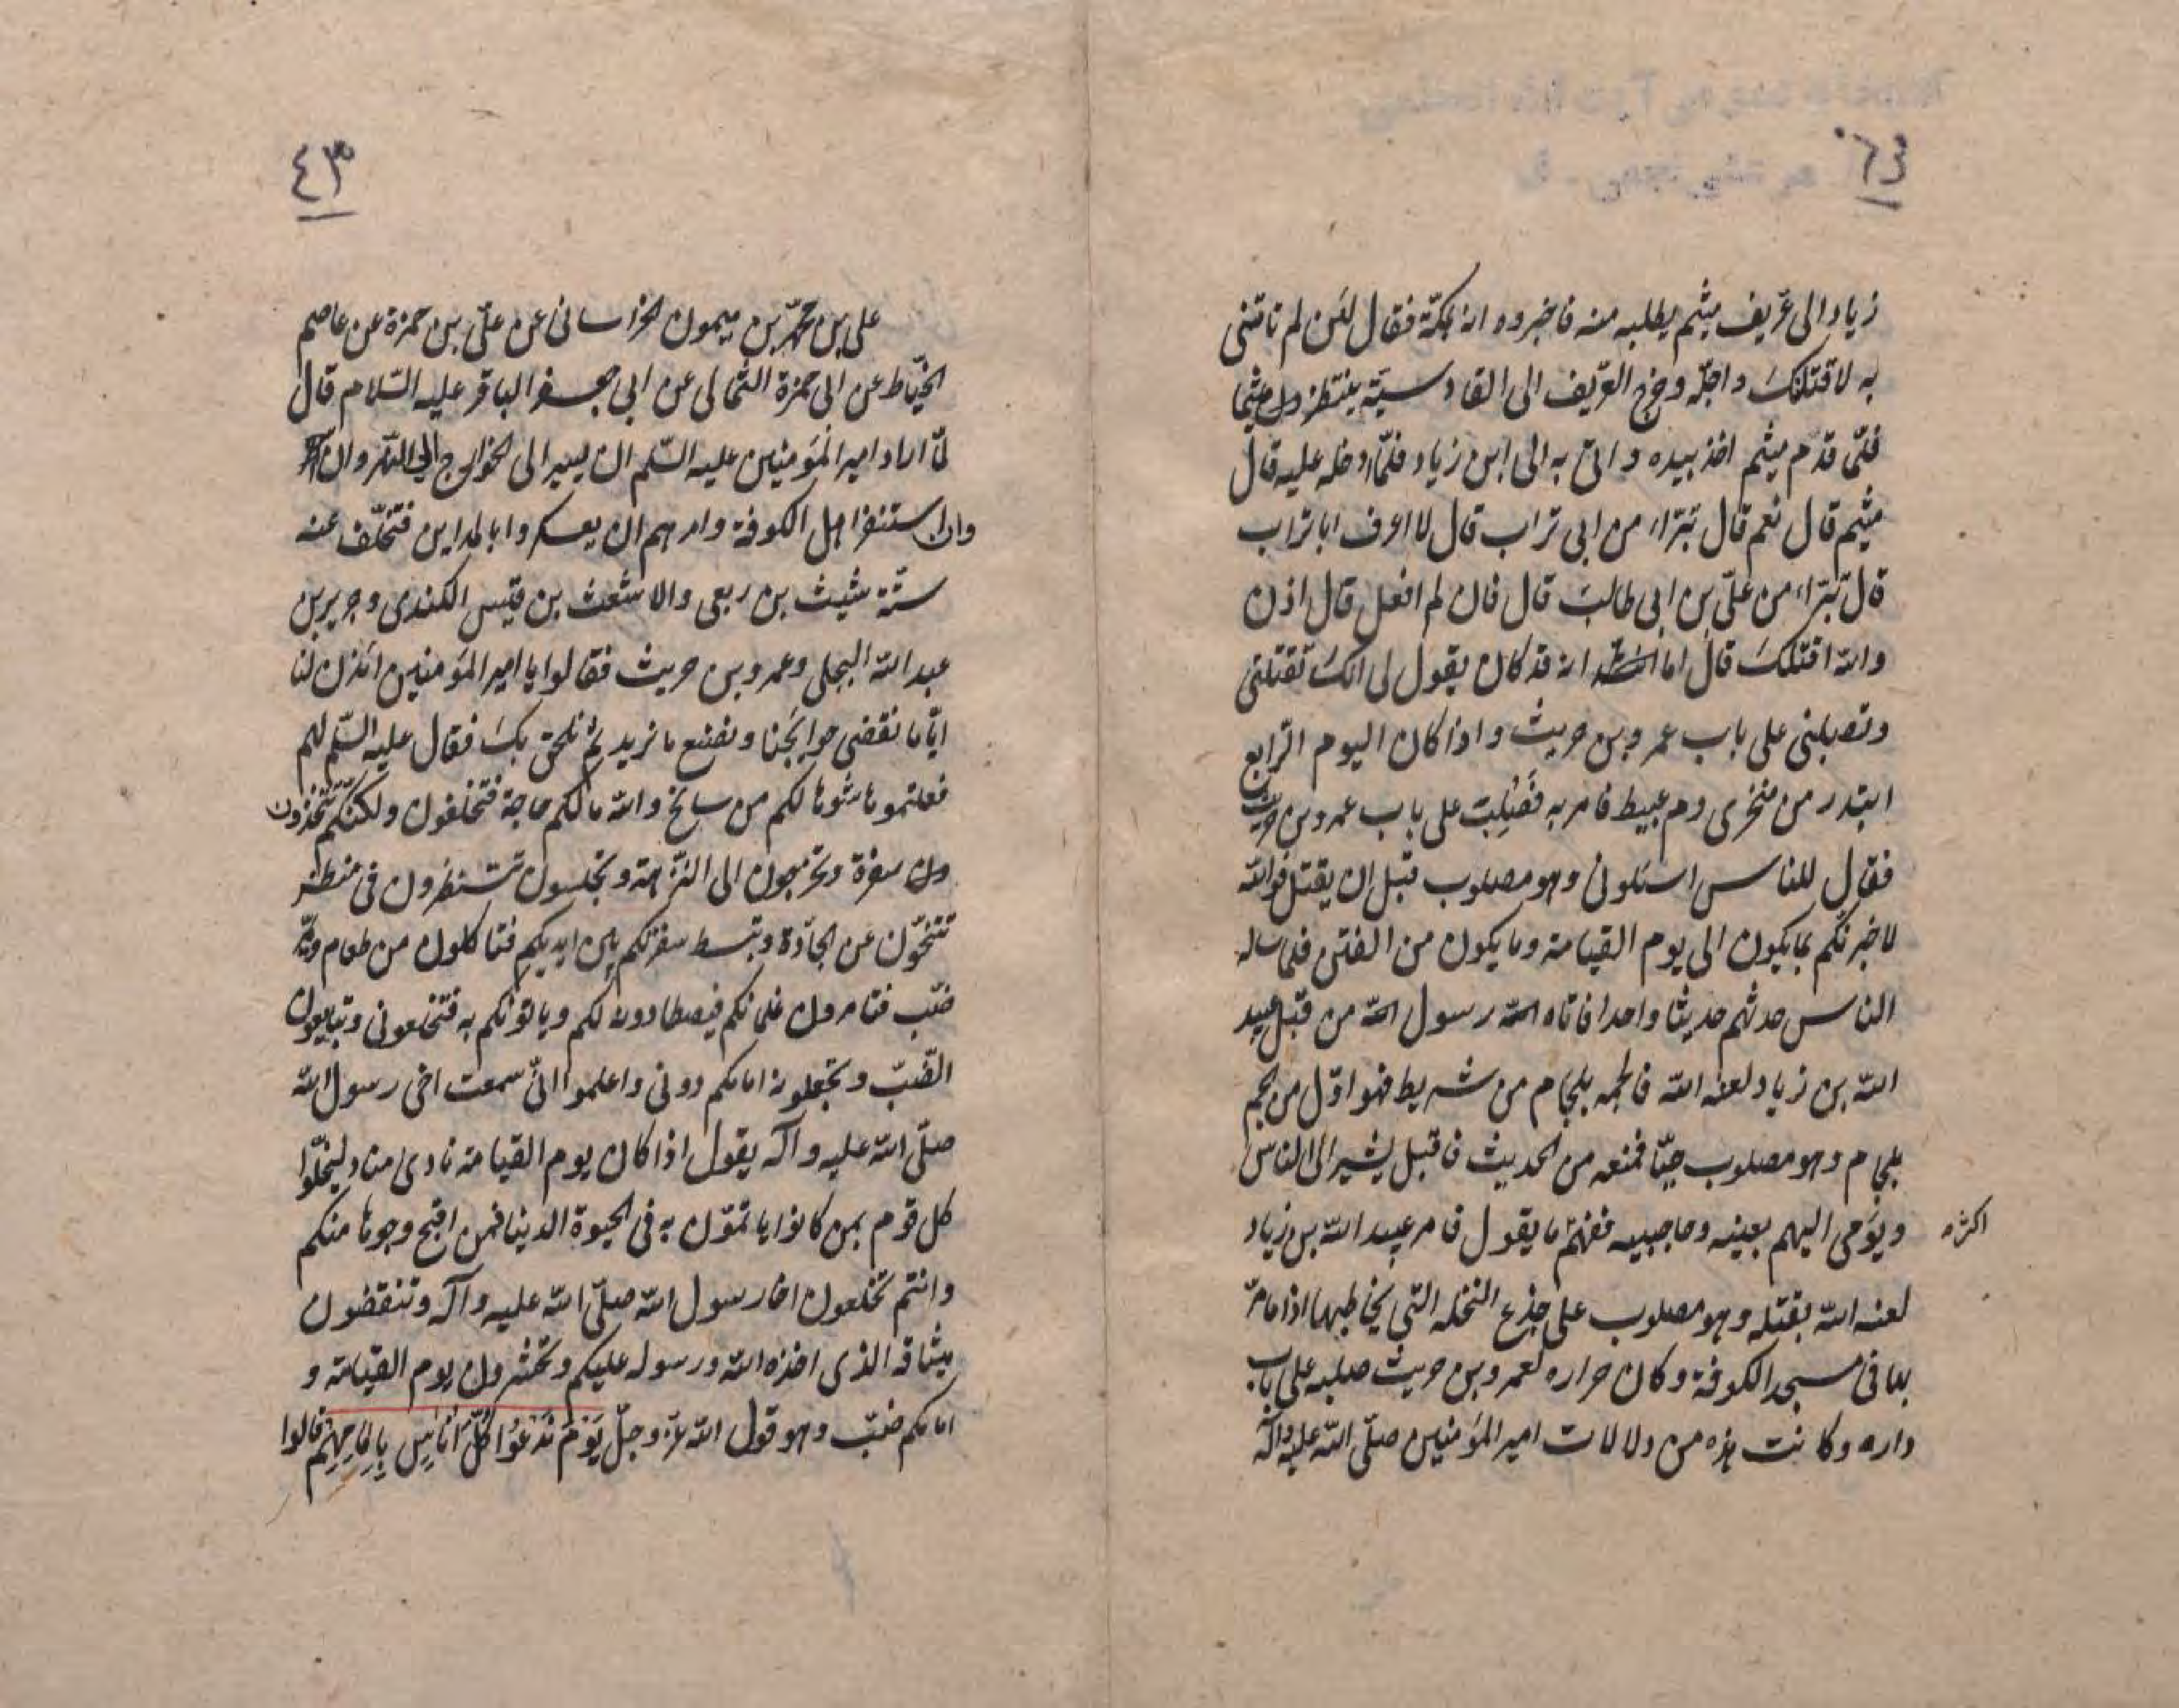 زياد الى عريف ميثم يطلبه منه فاخبروه انه بمكة فقال لئن لم تاتنى
به لاقتلنك واجله وخرج العريف الى القادسية ينتظر ميثما
فلمّا قدم ميثم اخذ بيده واتى به الى ابن زياد فلمّا ادخله عليه قال
ميثم قال نعم قال تبراء من ابى تراب قال لا اعرف ابا تراب
قال تبراء من علىّ بن ابى طالب قال فان لم افعل قال اذن
والله اقتلك قال اما انه قد كان يقول لى انك تقتلنى
وتصلبنى على باب عمرو بن حريث واذا كان اليوم الرابع
ابتدر من منخرى دم عبيط فامر به فصُلِبَ على باب عمرو بن حريث
فقال للناس اسئلونى وهو مصلوب قبل ان يقتل فوالله
لاخبرنكم بما يكون الى يوم القيامة وما يكون من الفتن فلما ساله
الناس حدثهم حديثا واحدا فاتاه رسول من قبل عبيد
الله بن زياد لعنه الله فالجمه بلجام من شريط فهو اوّل من لجم
بلجام وهو مصلوب حيّا فمنعه من الحديث فاقبل يشير الى الناس
ويؤمى اليهم بعينه وحاجبيه ففهم ما يقول فامر عبيد الله بن زياد
اكثره
لعنه الله بقتله وهو مصلوب على جذع النخله التى يخاطبها اذا مامرّ
بها فى مسجد الكوفة وكان جواره لعمرو بن حريث صلبه على باب
داره وكانت هذه من دلالات امير المؤمنين صلّى الله عليه وآله
٤٣
على بن محمّد بن ميمون الخراسانى عن علىّ بن حمزة عن عاصم
الخيّاط عن ابى حمزة الثمالى عن ابى جعفر الباقر عليه السّلام قال
لمّا اراد امير المؤمنين عليه السّلم ان يسير الى الخوارج الى النهروان
وان استنفر اهل الكوفة وامرهم ان يعسكروا بالمداين فتخلّف عنه
ستّة شبث بن ربعى والاشعث بن قيس الكندى وجرير بن
عبد الله البجلى وعمرو بن حريث فقالوا يا امير المؤمنين ائذن لنا
ايّاما نقضى حوايجنا ونصنع ما نريد ثم نلحق بك فقال عليه السّلم لهم
فعلتموها شوها لكم من سايخ والله ما لكم حاجة فتخلفون ولكنكم تتخذون
سفرة وتخرجون الى النزهة وتجلسون تنتظرون فى منظر
تتنحّون عن الجادّة وتبسط سفرتكم بين ايديكم فتاكلون من طعام
ضبّ فتامرون غلمانكم فيصطادونه لكم وياتونكم به فتخلعونى وتبايعون
الضّبّ وتجعلونه امامكم دونى واعلموا انّى سمعت اخى رسول الله
صلّى الله عليه وآله يقول اذا كان يوم القيامة نادى مناد ليخلّوا
كل قوم بمن كانوا ياتمّون به فى الحيوة الدنيا فمن اقبح وجوها منكم
وانتم تخلعون اخا رسول الله صلّى الله عليه وآله وتنقضون
ميثاقه الذى اخذه الله ورسوله عليكم وتحشرون يوم القيامة و
امامكم ضبّ وهو قول الله عزّ وجلّ يَوْمَ نَدْعُوا كُلَّ اُنَاسٍ بِاِمَامِهِم فقالوا